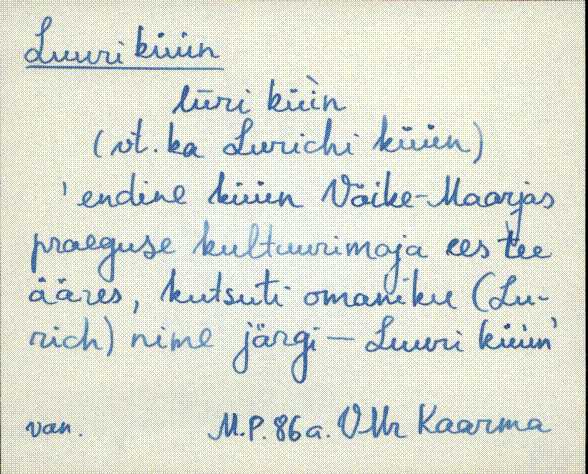 Luuri küün
lūri küìn
(vt. ka Lurichi küün)
'endine küün Väike-Maarjas
praeguse kultuurimaja ees tee
ääres, kutsuti omaniku (Lu-
rich) nime järgi – Luuri küün'
van. M.P. 86a. VMr Kaarma